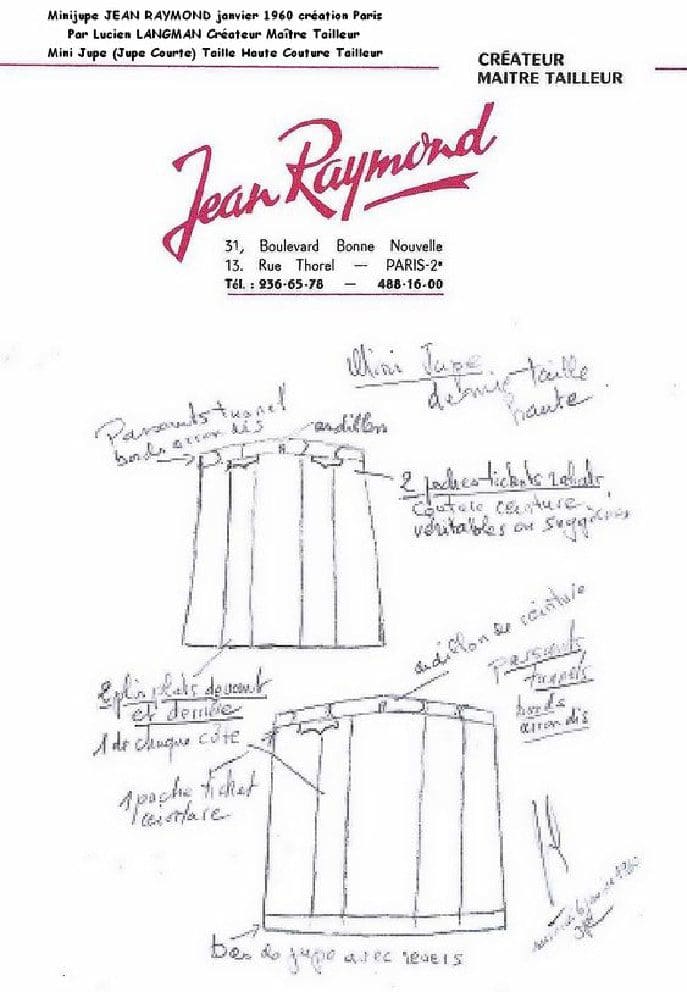 Minijupe JEAN RAYMOND janvier 1960 création Paris
Par Lucien LANGMAN Créateur Maître Tailleur
Mini Jupe (Jupe Courte) Taille Haute Couture Tailleur
CRÉATEUR
MAITRE TAILLEUR
Jean Raymond
31, Boulevard Bonne Nouvelle
13. Rue Thorel — PARIS-2e
Tél. : 236-65-78 — 488-16-00
Mini Jupe
taille
haute
Passants tunnel
bords arrondis
ardillon
2 poches tickets rabats
ceinture
véritables ou
2 plis plats devant
et derrière
1 de chaque côté
ardillon de ceinture
Passants
tunnels
bords
arrondis
1 poche ticket
ceinture
bas de jupe avec revers